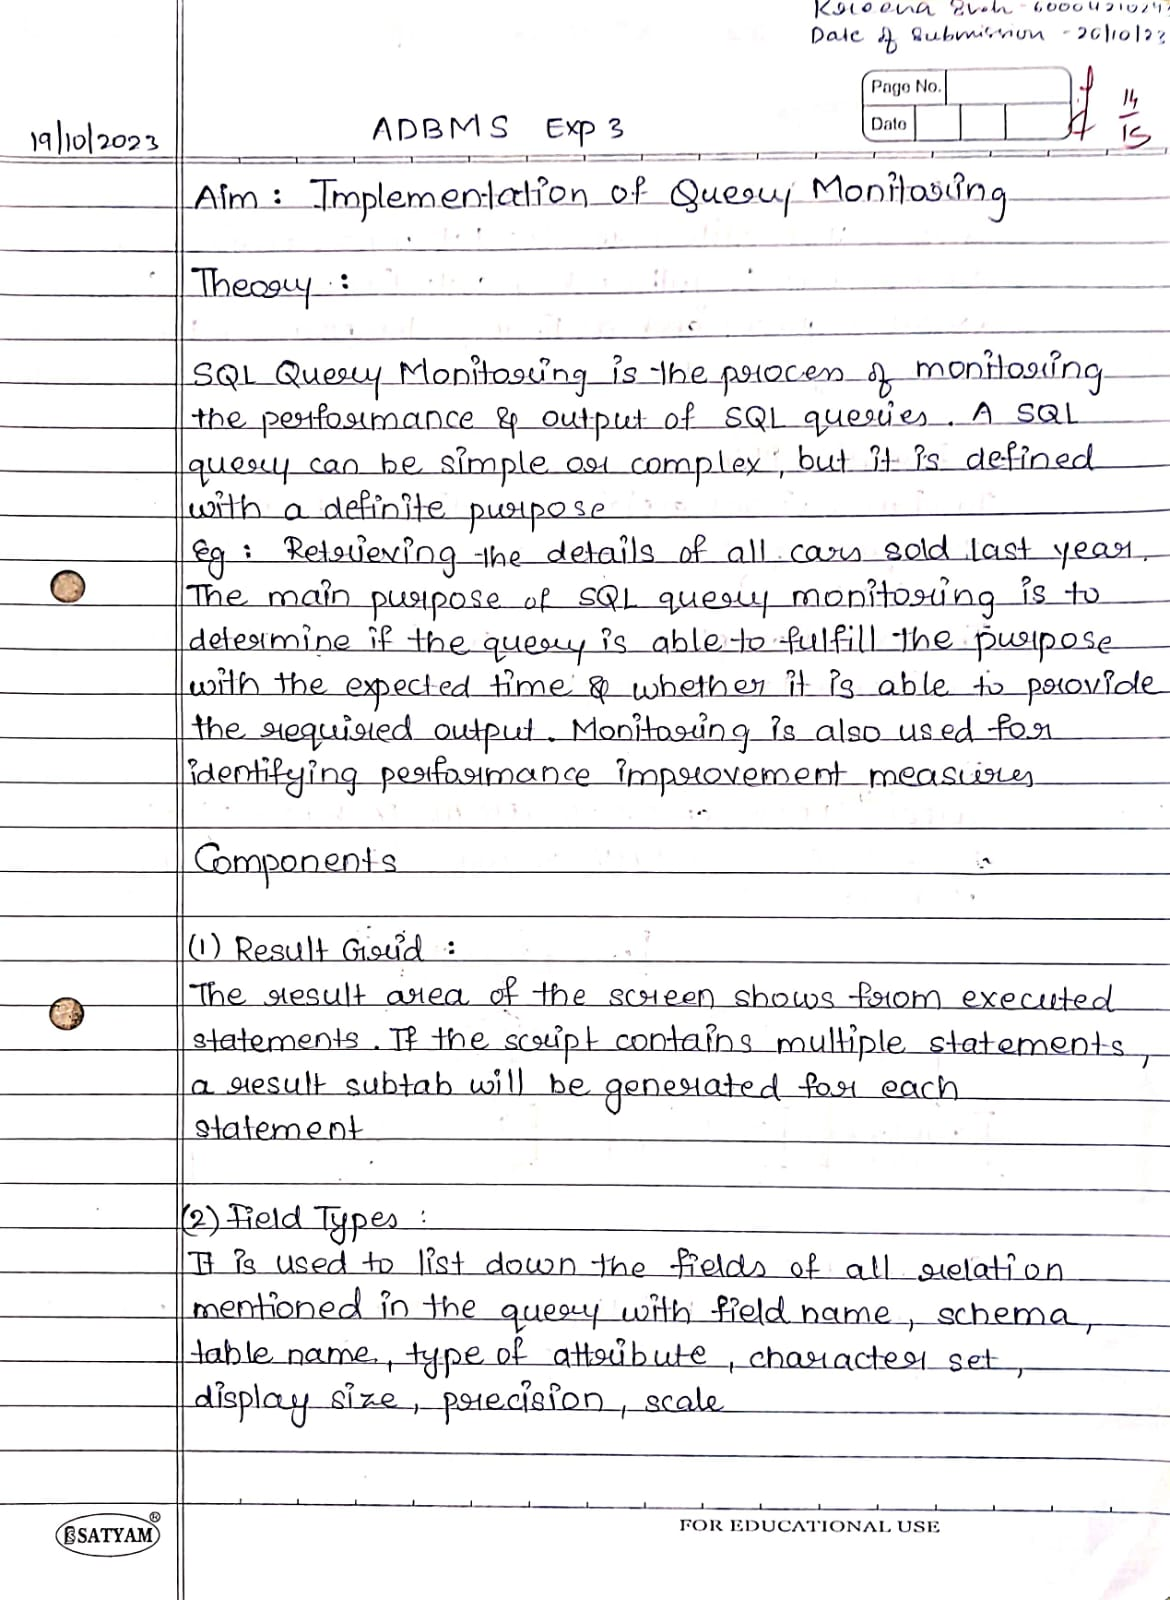 Date of Submission - 26/10/23
Page No.
Date
14
15
19/10/2023
ADBMS Exp 3
Aim : Implementation of Query Monitoring
Theory :
SQL Query Monitoring is the process of monitoring
the performance & output of SQL queries. A SQL
query can be simple or complex, but it is defined
with a definite purpose
Eg : Retrieving the details of all cars sold last year.
The main purpose of SQL query monitoring is to
determine if the query is able to fulfill the purpose
with the expected time & whether it is able to provide
the required output. Monitoring is also used for
identifying performance improvement measures
Components
(1) Result Grid :
The result area of the screen shows from executed
statements. If the script contains multiple statements,
a result subtab will be generated for each
statement
(2) Field Types :
It is used to list down the fields of all relation
mentioned in the query with field name, schema,
table name, type of attribute, character set,
display size, precision, scale
SATYAM
FOR EDUCATIONAL USE